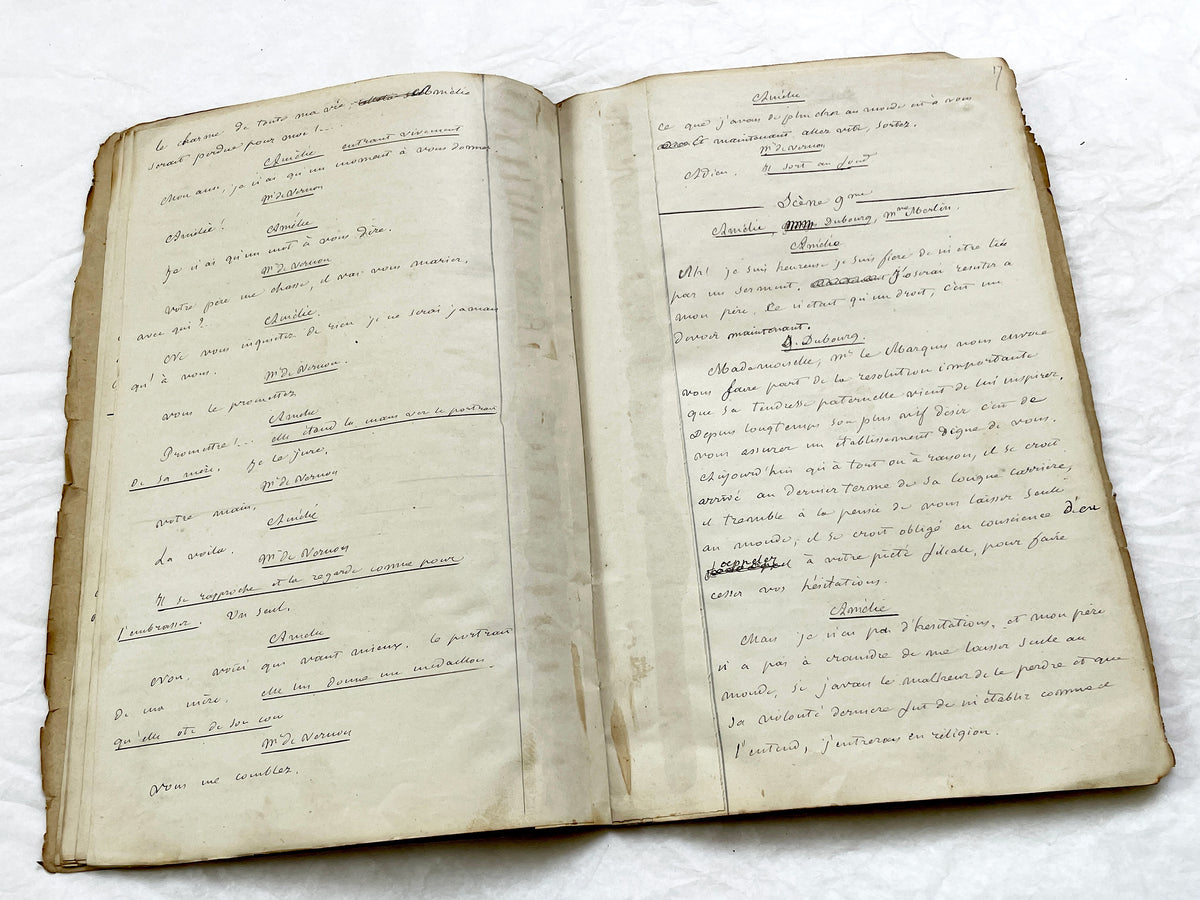 le charme de toute ma vie, Amélie
serait perdue pour moi!....
Amélie entrant vivement
Mon ami, je n'ai qu'un moment à vous donner.
Mr de Vernon
Amélie!
Amélie
Je n'ai qu'un mot à vous dire.
Mr de Vernon
Votre père me chasse, il va vous marier,
avec qui?..
Amélie
Ne vous inquietez de rien je ne serai jamais
qu'à vous.
Mr de Vernon.
Vous le promettez
Amélie
Promettre!... elle étend la main vers le portrait
de sa mère. Je le jure.
Mr de Vernon
Votre main,
Amélie
La voila.
Mr de Vernon
Il se rapproche et la regarde comme pour
l'embrasser. Un seul.
Amélie
Non, voici qui vaut mieux. le portrait
de ma mère. elle lui donne un médaillon
qu'elle ote de son cou
Mr de Vernon
Vous me comblez.
17
Amélie
ce que j'avais de plus cher au monde est à vous
Et maintenant allez vite, sortez.
Mr de Vernon
Adieu. Il sort au fond
Scène 9me
Amélie, Dubourg, Mme Merlin.
Amélie
Ah! je suis heureuse je suis fière de m'etre liée
par un serment. J'oserai resister à
mon père. Ce n'était qu'un droit, c'est un
devoir maintenant.
D. Dubourg.
Mademoiselle, Mr le Marquis nous envoie
vous faire part de la resolution importante
que sa tendresse paternelle vient de lui inspirer.
Depuis longtemps son plus vif désir c'est de
vous assurer un établissement digne de vous.
Aujourd'hui qu'à tort ou à raison, il se croit
arrivé au dernier terme de sa longue carrière,
il tremble à la pensée de vous laisser seule
au monde, il se croit obligé en conscience d'en
appeler à votre piété filiale, pour faire
cesser vos hésitations.
Amélie
Mais je n'ai pas d'hesitations, et mon père
n'a pas à craindre de me laisser seule au
monde, si j'avais le malheur de le perdre et que
sa volonté dernière fut de m'établir comme il
l'entend, j'entrerais en réligion.